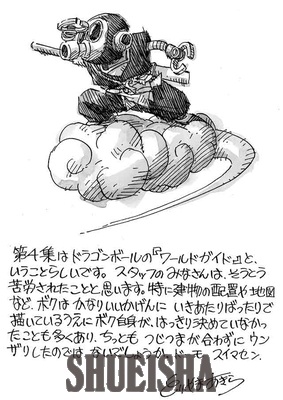 第4集はドラゴンボールの『ワールドガイド』と、
いうことらしいです。スタッフのみなさんは、そうとう
苦労されたことと思います。特に建物の配置や地図
など、ボクはかなりいいかげんに いきあたりばったりで
描いているうえにボク自身が、はっきり決めていなかっ
たことも多くあり、ちっとも つじつまが合わずに ウン
ザリしたのでは ないでしょうか。ドーモ スイマセン。
とりやまあきら
SHUEISHA